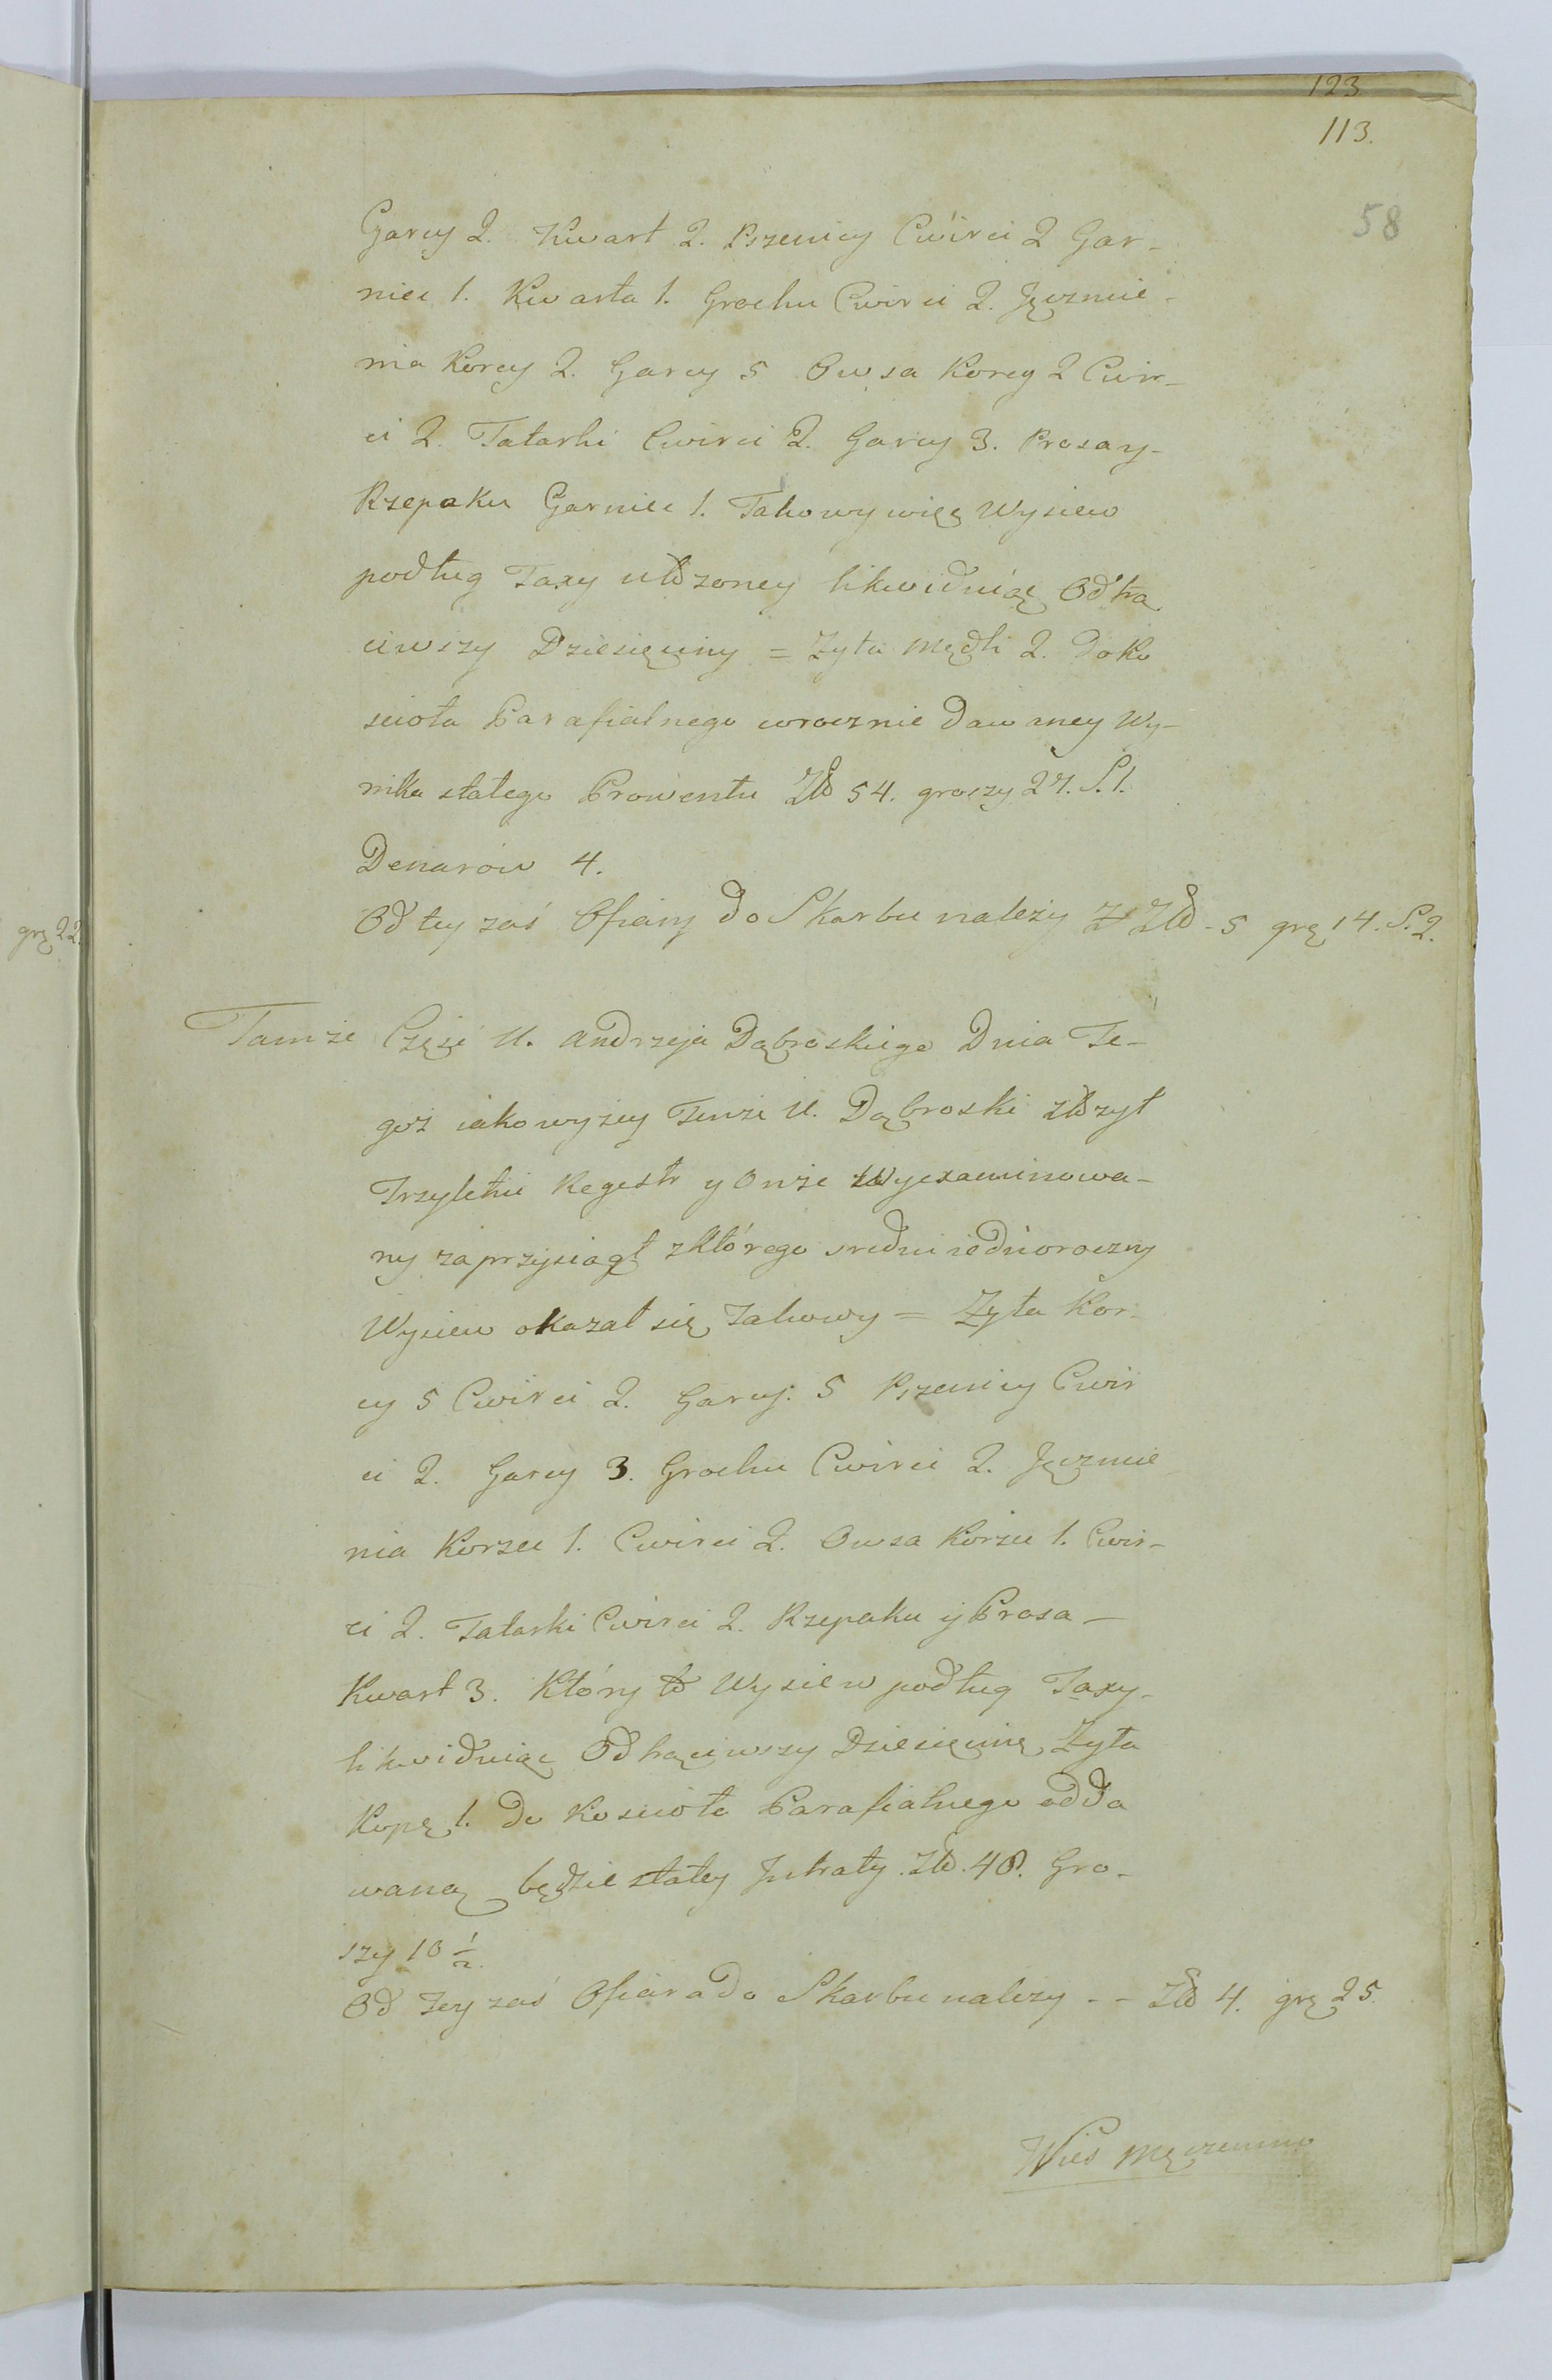 123
113.
58
Garcy 2. Kwart 2. Pszenicy Cwirci 2 Gar-
niec 1. Kwarta 1. Grochu Cwirci 2. Jęczmie-
nia Korcy 2. Garcy 5 Owsa Korcy 2 Cwir-
ci 2. Tatarki Cwirci 2. Garcy 3. Prosa y-
Rzepaku Garniec 1. Takowy więc Wysiew
podług Taxy ułożoney likwiduiąc Odtrą
ciwszy Dziesięciny = Zyta Mędli 2. do Ko
scioła Parafialnego corocznie dawaney Wy-
nika stałego Prowentu Zło 54. groszy 27. S. 1.
Denarow 4.
Od tey zaś Ofiary do Skarbu nalezy Zło - 5 grę 14. S. 2.
grę 22.
Tamże Częsć U. Andrzeja Dąbroskiego Dnia Te-
goż iako wyżey Tenże U. Dąbroski złożył
Trzyletni Regestr y Onże Wyexaminowa-
ny zaprzysiągł z którego sredni iednoroczny
Wysiew okazał się Takowy = Zyta Kor-
cy 5 Cwirci 2. Garcy. 5 Pszenicy Cwir
ci 2. Garcy 3. Grochu Cwirci 2. Jęczmie
nia Korzec 1. Cwirci 2. Owsa Korzec 1. Cwir-
ci 2. Tatarki Cwirci 2. Rzepaku y Prosa-
Kwart 3. Który to Wysiew podług Taxy-
likwiduiąc Odtrąciwszy Dziesięcinę Zyta
Kopę 1. do Koscioła Parafialnego odda
waną będzie stałey Jntraty. Zło. 48. Gro-
szy 10 1/2.
Od Tey zaś Ofiara do Skarbu nalezy - - Zło 4. grę 25.
Wies Męczenino